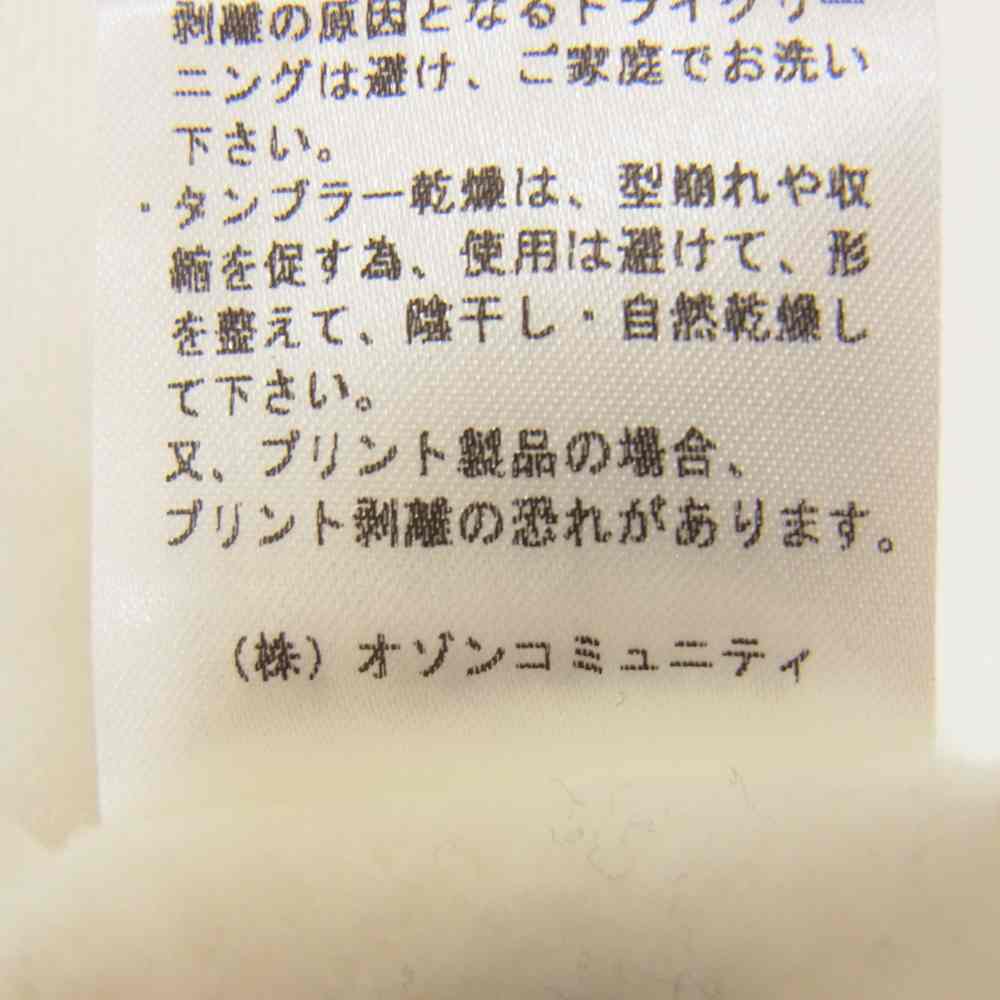 剥離の原因となるドライクリー
ニングは避け、ご家庭でお洗い
下さい。
・タンブラー乾燥は、型崩れや収
縮を促す為、使用は避けて、形
を整えて、陰干し・自然乾燥し
て下さい。
又、プリント製品の場合、
プリント剥離の恐れがあります。
（株）オゾンコミュニティ